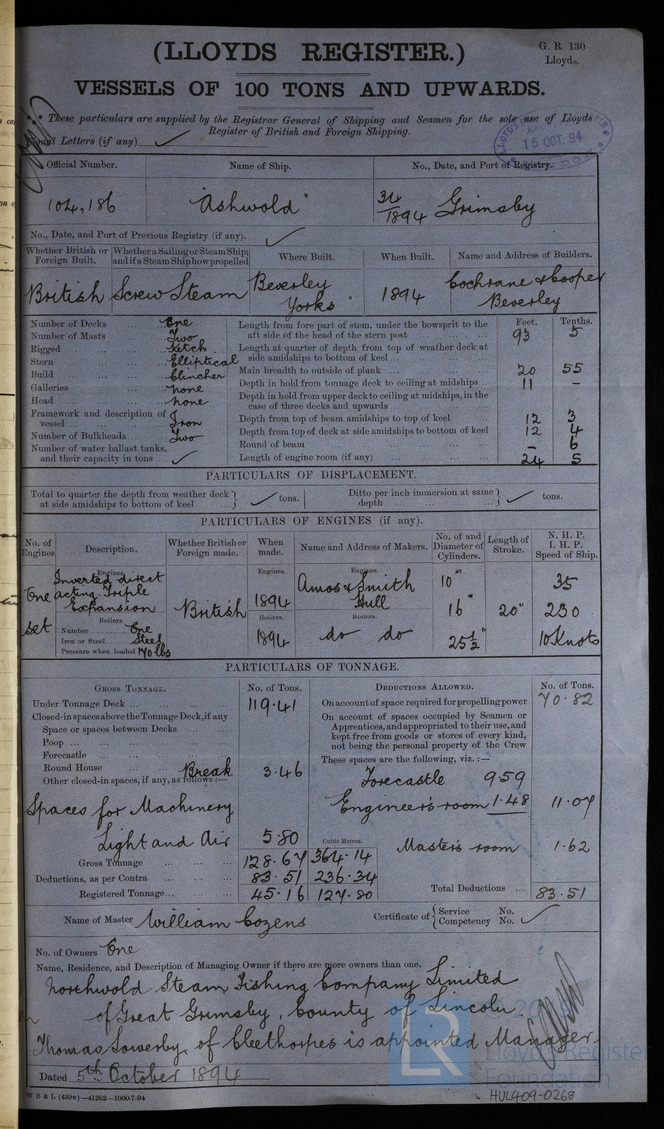 (LLOYDS REGISTER.)
G. R. 130
Lloyds.
VESSELS OF 100 TONS AND UPWARDS.
These particulars are supplied by the Registrar General of Shipping and Seamen for the sole use of Lloyds
Register of British and Foreign Shipping.
Signal Letters (if any)
15 OCT. 94
Official Number. Name of Ship. No., Date, and Port of Registry.
104,186 "Ashwold" 34/1894 Grimsby
No., Date, and Port of Previous Registry (if any).
Whether British or Foreign Built. Whether a Sailing or Steam Ship; and if a Steam Ship how propelled Where Built. When Built. Name and Address of Builders.
British Screw Steam Beverley Yorks 1894 Cochrane & Cooper Beverley
Number of Decks One
Number of Masts Two
Rigged Ketch
Stern Elliptical
Build Clincher
Galleries none
Head none
Framework and description of vessel Iron
Number of Bulkheads Two
Number of water ballast tanks, and their capacity in tons
Feet. Tenths.
Length from fore part of stem, under the bowsprit to the aft side of the head of the stern post 93 5
Length at quarter of depth from top of weather deck at side amidships to bottom of keel
Main breadth to outside of plank 20 55
Depth in hold from tonnage deck to ceiling at midships 11 -
Depth in hold from upper deck to ceiling at midships, in the case of three decks and upwards
Depth from top of beam amidships to top of keel 12 3
Depth from top of deck at side amidships to bottom of keel 12 4
Round of beam - 6
Length of engine room (if any) 24 5
PARTICULARS OF DISPLACEMENT.
Total to quarter the depth from weather deck at side amidships to bottom of keel tons. Ditto per inch immersion at same depth tons.
PARTICULARS OF ENGINES (if any).
No. of Engines. Description. Whether British or Foreign made. When made. Name and Address of Makers. No. of and Diameter of Cylinders. Length of Stroke. N. H. P. I. H. P. Speed of Ship.
Engines. Engines. Engines.
One set Inverted direct acting Triple Expansion British 1894 Amos & Smith Hull 10" 16" 25½" 20" 35 230 10 Knots
Boilers. Boilers. Boilers.
Number One 1894 do do
Iron or Steel Steel
Pressure when loaded 170 lbs
PARTICULARS OF TONNAGE.
GROSS TONNAGE. No. of Tons. DEDUCTIONS ALLOWED. No. of Tons.
Under Tonnage Deck 119.41
Closed-in spaces above the Tonnage Deck, if any
Space or spaces between Decks
Poop
Forecastle
Round House Break 3.46
Other closed-in spaces, if any, as follows:—
Spaces for Machinery
Light and Air 5.80
Cubic Metres.
Gross Tonnage 128.67 364.14
Deductions, as per Contra 83.51 236.34
Registered Tonnage 45.16 127.80
On account of space required for propelling power 70.82
On account of spaces occupied by Seamen or Apprentices, and appropriated to their use, and kept free from goods or stores of every kind, not being the personal property of the Crew
These spaces are the following, viz. :—
Forecastle 9.59
Engineer's room 1.48 11.07
Master's room 1.62
Total Deductions 83.51
Name of Master William Cozens Certificate of Service No. Competency No.
No. of Owners One
Name, Residence, and Description of Managing Owner if there are more owners than one.
Northwold Steam Fishing Company Limited
of Great Grimsby, County of Lincoln.
Thomas Sowerby, of Cleethorpes is appointed Manager
Dated 5th October 1894
W B & L (439w)—41262—1000-7-94
LR
Lloyd's Register
Foundation
HUL409-0268